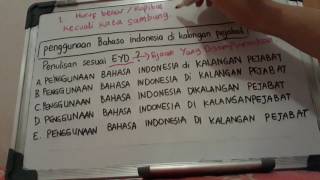 1. Huruf besar / kapital
Kecuali kata sambung
penggunaan Bahasa indonesia di kalangan pejabat
Penulisan sesuai EYD ? → Ejaan Yang Disempurnakan
A. PENGGUNAAN BAHASA INDONESIA di KALANGAN PEJABAT
B. PENGGUNAAN BAHASA INDONESIA Di KALANGAN PEJABAT
C. PENGGUNAAN BAHASA INDONESIA DIKALANGAN PEJABAT
D. PENGGUNAAN BAHASA INDONESIA DI KALANGANPEJABAT
E. PENGGUNAAN BAHASA INDONESIA DI KALANGAN PEJABAT